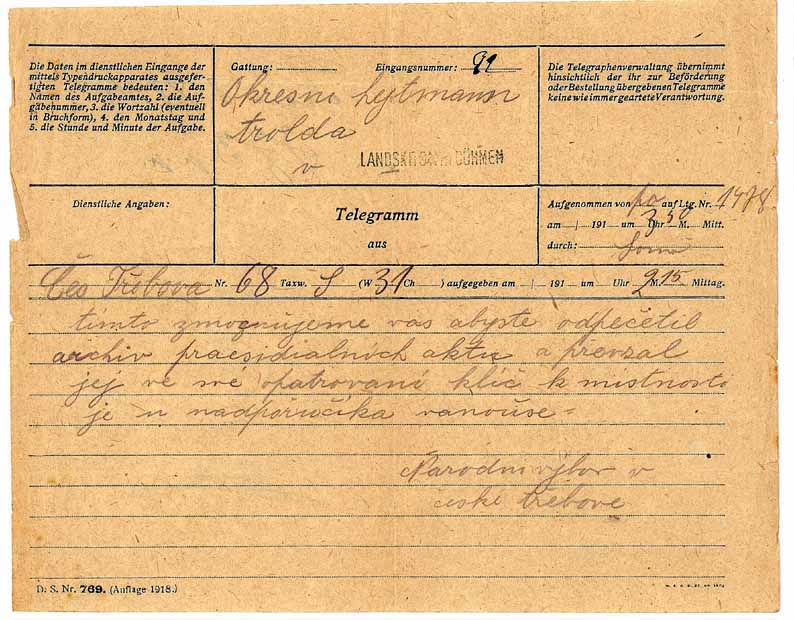 Die Daten im dienstlichen Eingange der
mittels Typendruckapparates ausgefer-
tigten Telegramme bedeuten: 1. den
Namen des Aufgabeamtes, 2. die Auf-
gäbenummer, 3. die Wortzahl (eventuell
in Bruchform), 4. den Monatstag und
5. die Stunde und Minute der Aufgabe.
Gattung: Eingangsnummer: 91
Okresni hejtmann
trolda
v LANDSKRON IN BÖHMEN
Die Telegraphenverwaltung übernimmt
hinsichtlich der ihr zur Beförderung
oder Bestellung übergebenen Telegramme
keine wie immer geartete Verantwortung.
Dienstliche Angaben:
Telegramm
aus
Aufgenommen von pa auf Ltg. Nr. 1478
am / 191 um 3 50 Uhr M. Mitt.
durch:
Čes Třebova Nr. 68 Taxw. S (W 31 Ch ) aufgegeben am / 191 um Uhr 2 M. 15 Mittag.
timto zmocnujeme vas abyste odpečetil
archiv praesidialnich aktu a převzal
jej ve své opatrovani klíč k mistnosto
je u nadporučíka vanouše =
Narodni vybor v
česke třebove
D. S. Nr. 769. (Auflage 1918.)